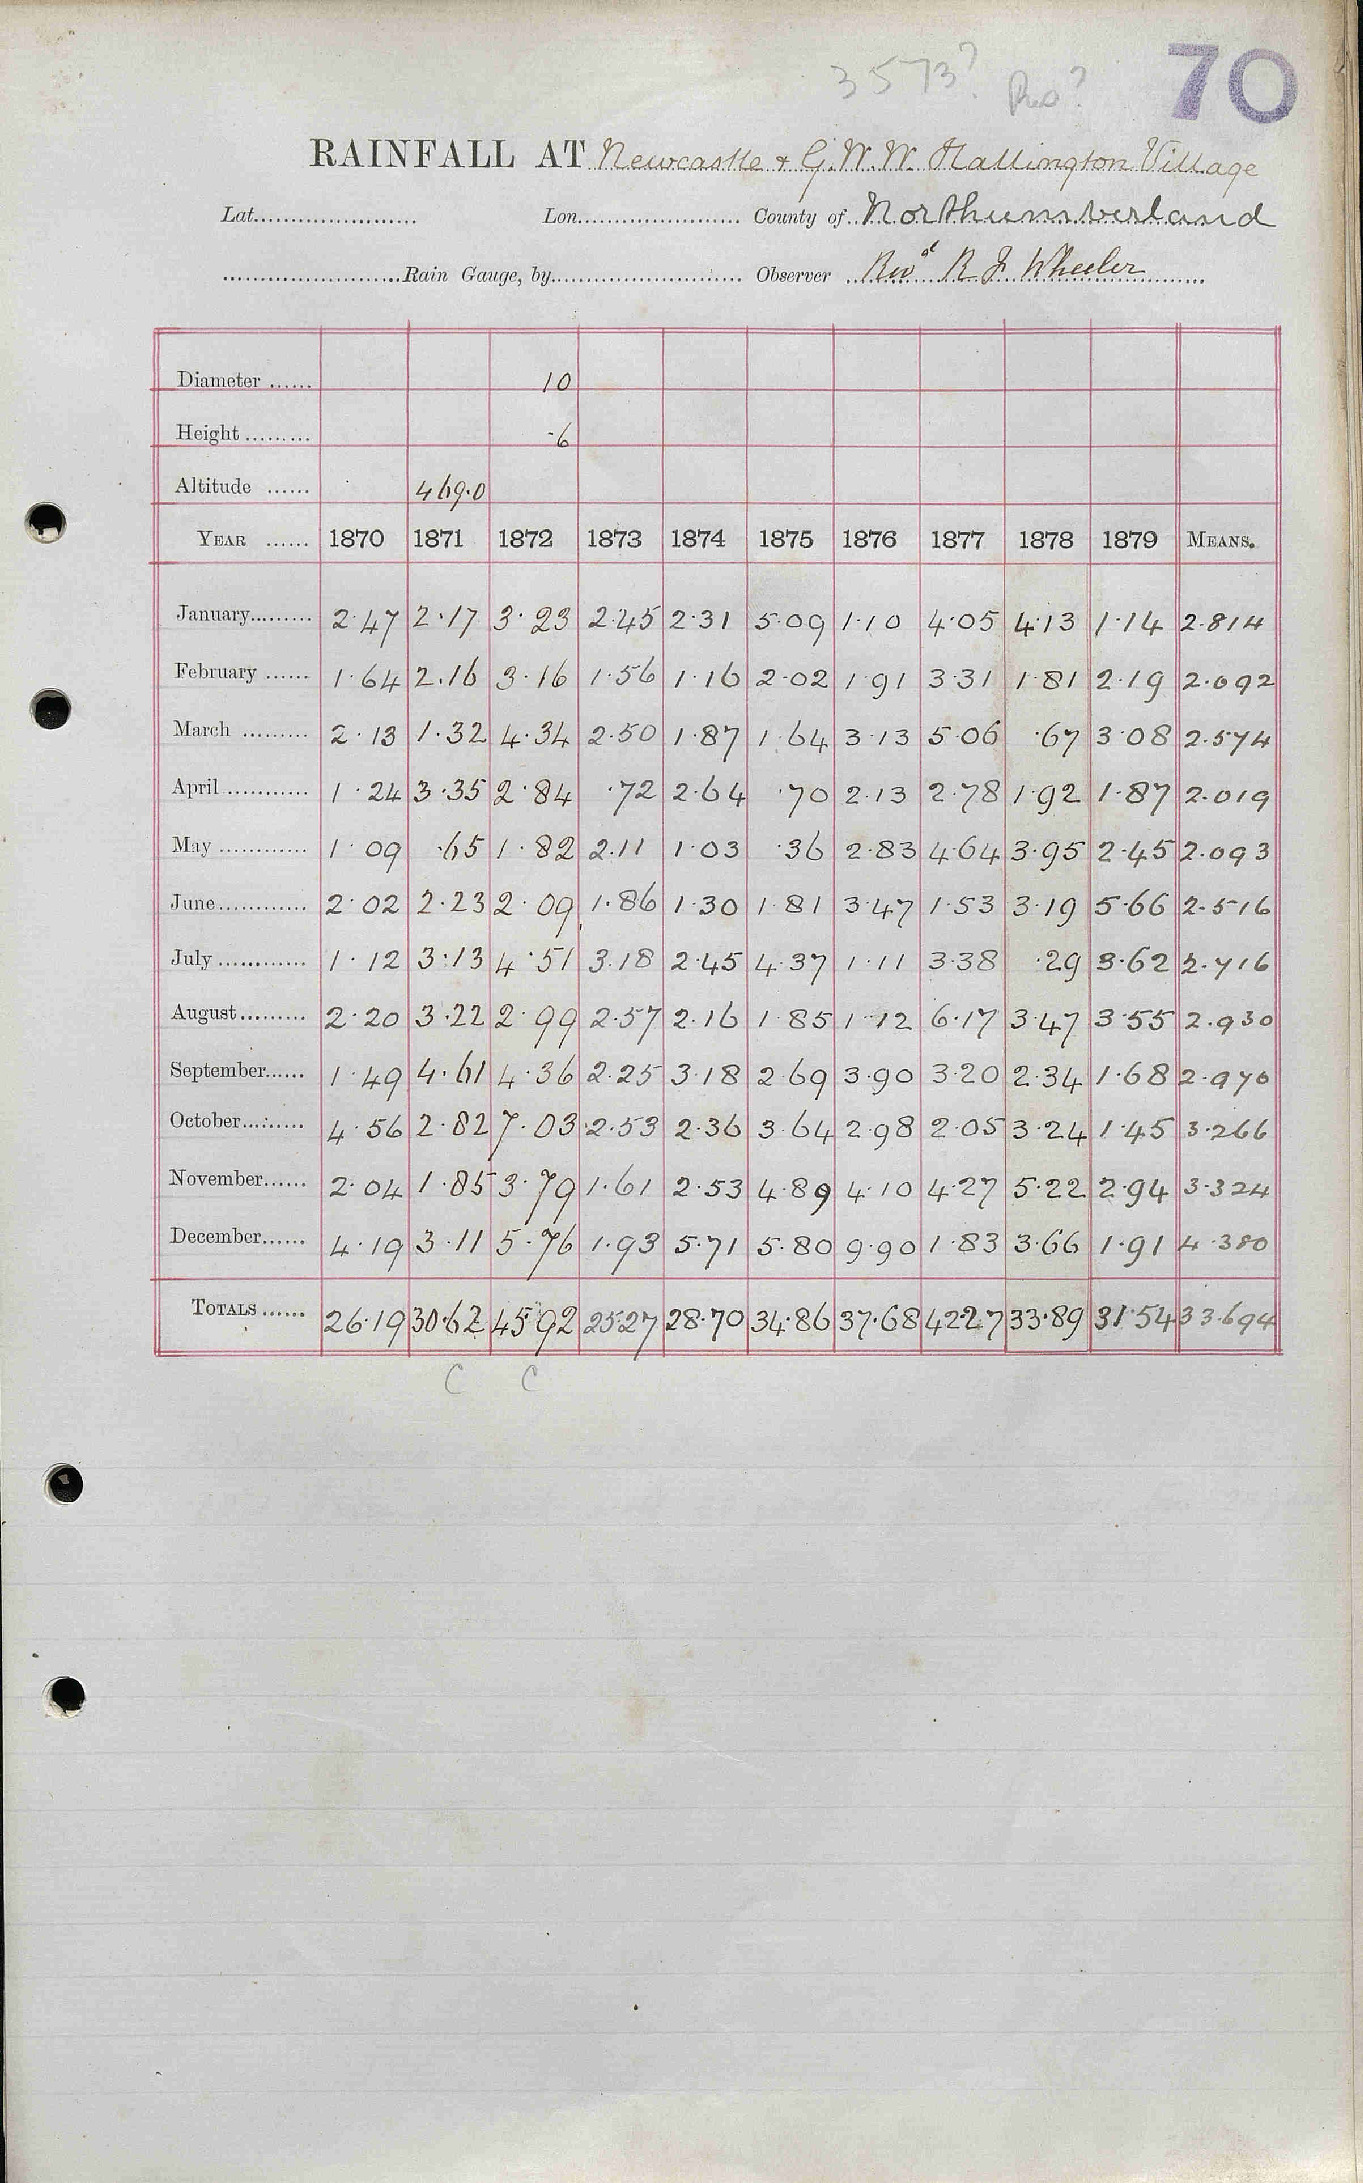 3573? 70
RAINFALL AT Newcastle & G.W.W. Hallington Village
Lat. Lon. County of Northumberland
Rain Gauge, by Observer Revd R J Wheeler
Diameter 10
Height ·6
Altitude 469.0
YEAR 1870 1871 1872 1873 1874 1875 1876 1877 1878 1879 MEANS.
January 2.47 2.17 3.23 2.45 2.31 5.09 1.10 4.05 4.13 1.14 2.814
February 1.64 2.16 3.16 1.56 1.16 2.02 1.91 3.31 1.81 2.19 2.092
March 2.13 1.32 4.34 2.50 1.87 1.64 3.13 5.06 .67 3.08 2.574
April 1.24 3.35 2.84 .72 2.64 .70 2.13 2.78 1.92 1.87 2.019
May 1.09 .65 1.82 2.11 1.03 .36 2.83 4.64 3.95 2.45 2.093
June 2.02 2.23 2.09 1.86 1.30 1.81 3.47 1.53 3.19 5.66 2.516
July 1.12 3.13 4.51 3.18 2.45 4.37 1.11 3.38 .29 3.62 2.716
August 2.20 3.22 2.99 2.57 2.16 1.85 1.12 6.17 3.47 3.55 2.930
September 1.49 4.61 4.36 2.25 3.18 2.69 3.90 3.20 2.34 1.68 2.970
October 4.56 2.82 7.03 2.53 2.36 3.64 2.98 2.05 3.24 1.45 3.266
November 2.04 1.85 3.79 1.61 2.53 4.89 4.10 4.27 5.22 2.94 3.324
December 4.19 3.11 5.76 1.93 5.71 5.80 9.90 1.83 3.66 1.91 4.380
TOTALS 26.19 30.62 45.92 25.27 28.70 34.86 37.68 42.27 33.89 31.54 33.694
C C